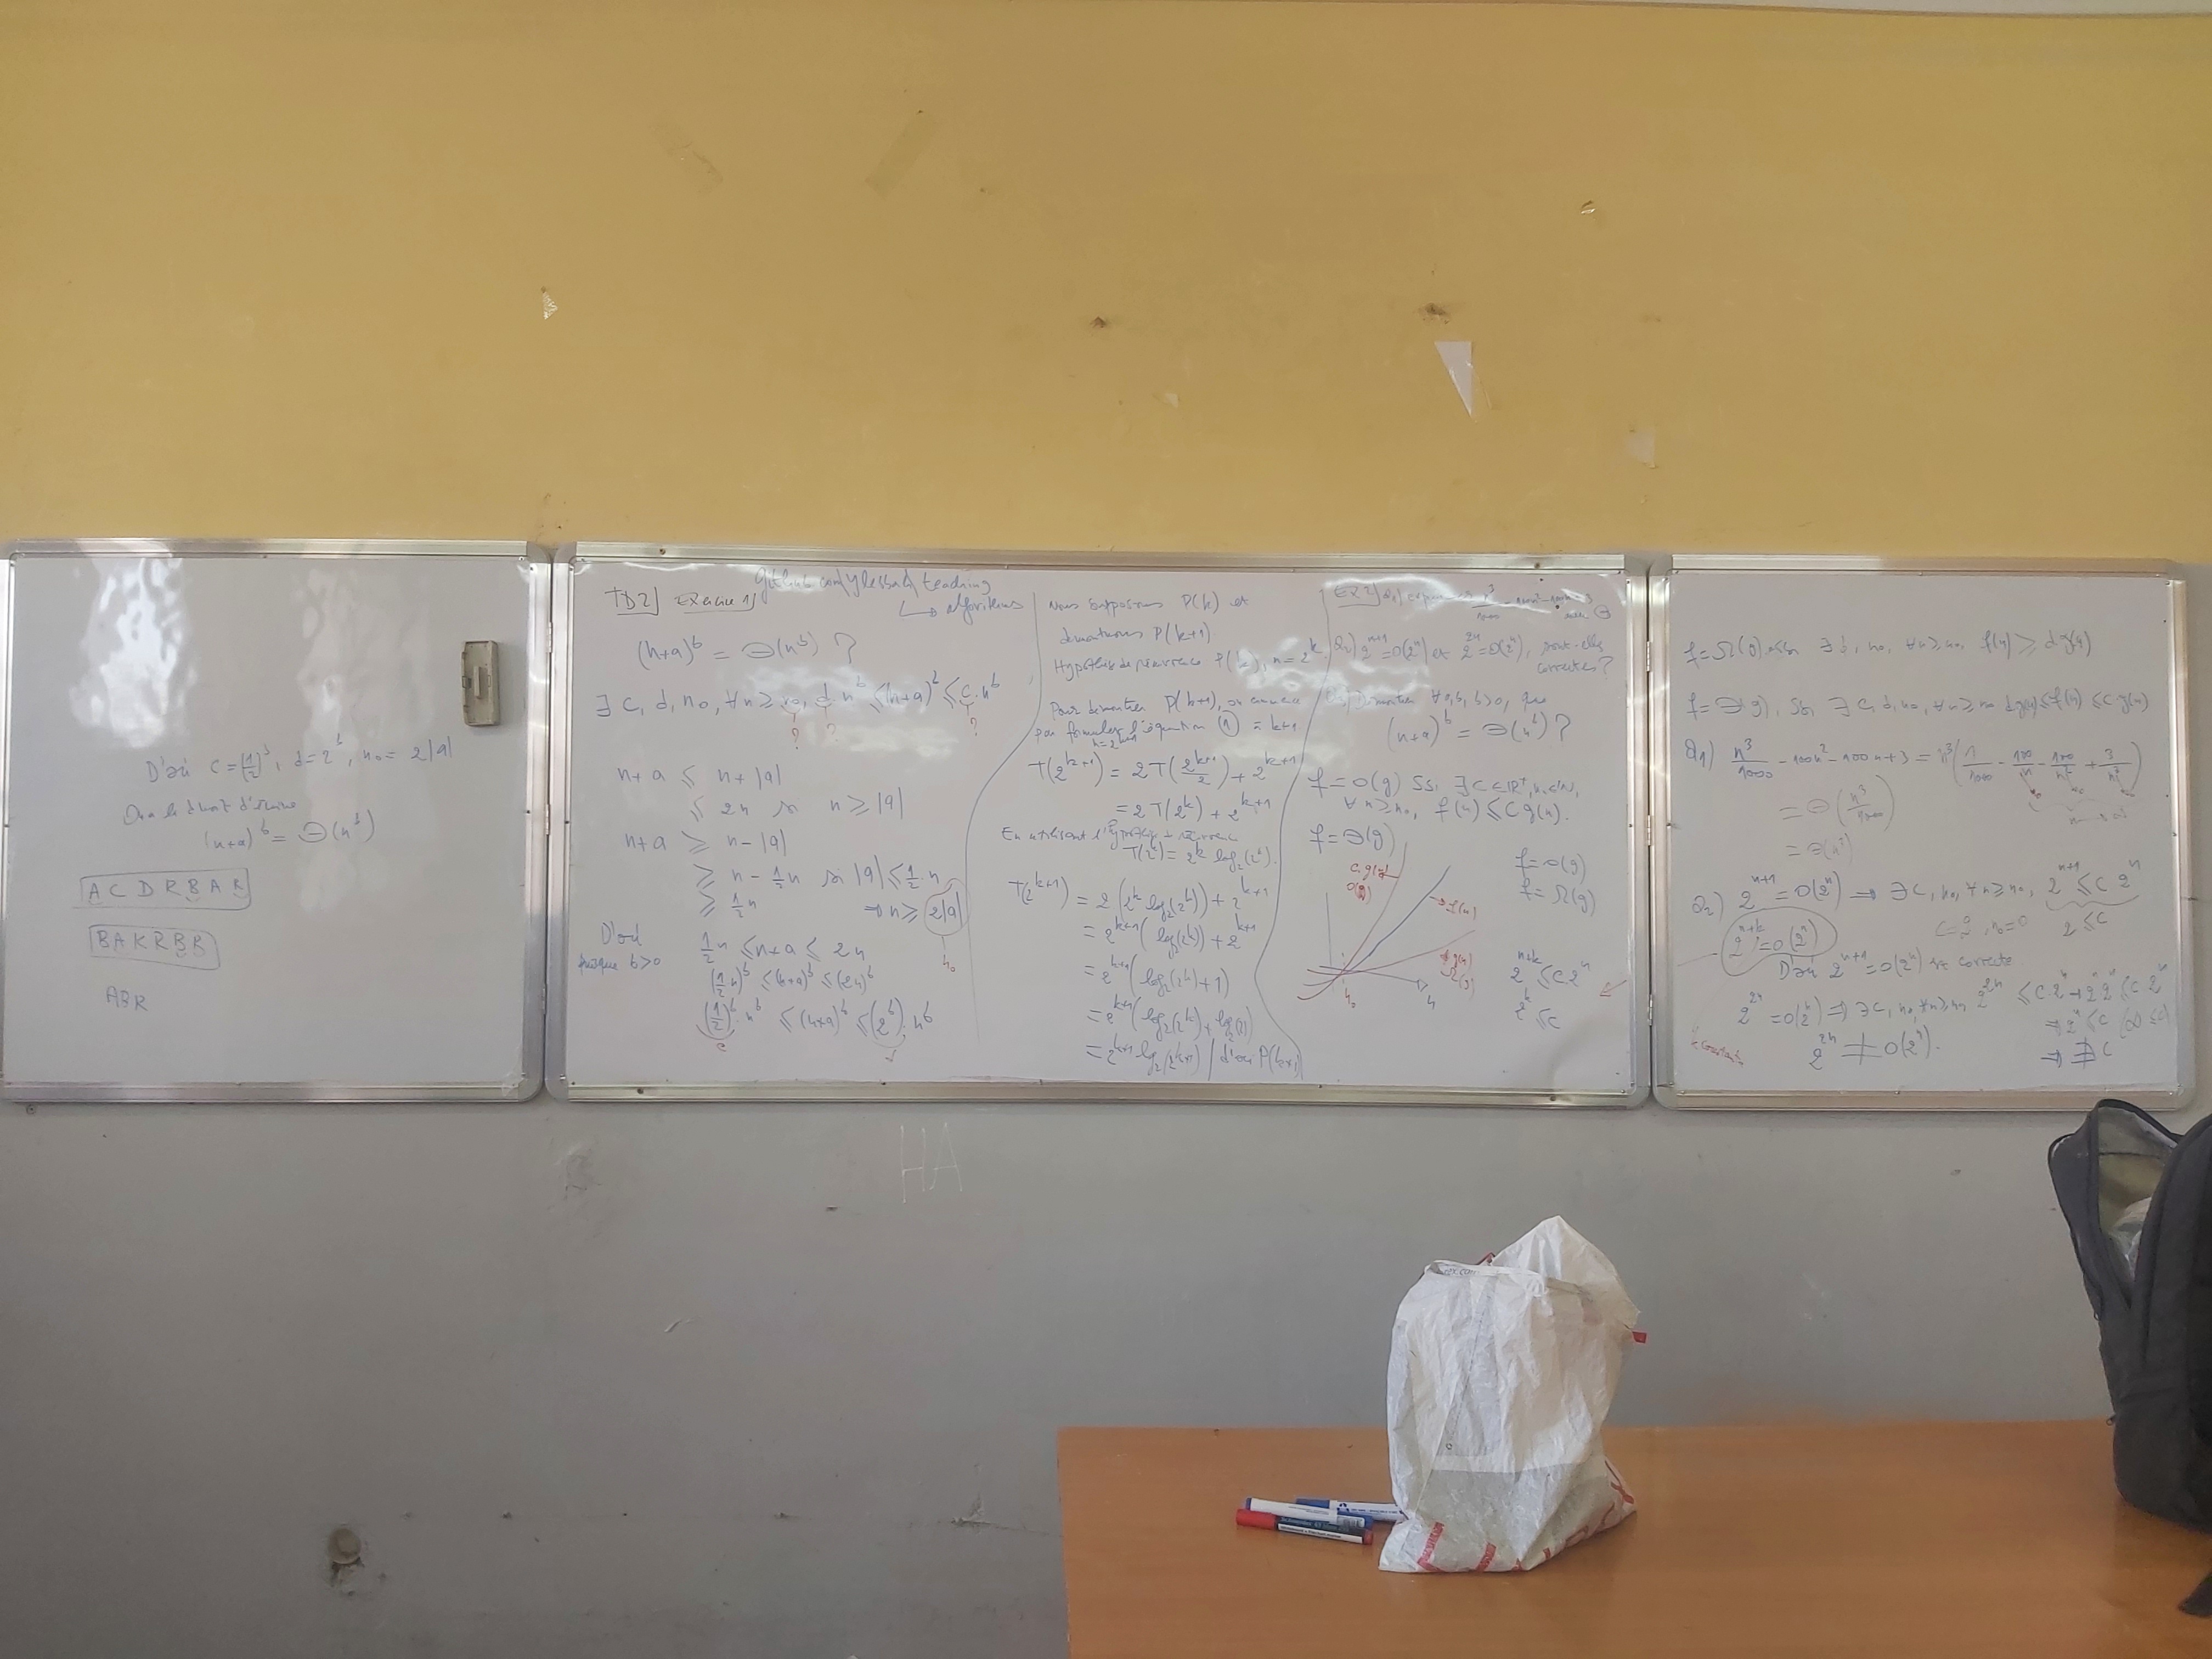 D'où c = (1/2)^b, d = 2^b, n₀ = 2|a|
On a le droit d'écrire
(n+a)^b = Θ(n^b)
A C D R B A R
B A K R B B
ABR
TD2] Exercice 1]
teaching
↳ algorithms
(n+a)^b = Θ(n^b) ?
∃ c, d, n₀, ∀n ≥ n₀, d·n^b ≤ (n+a)^b ≤ c·n^b
? ? ?
n+a ≤ n+|a|
≤ 2n si n ≥ |a|
n+a ≥ n-|a|
≥ n - 1/2 n si |a| ≤ 1/2·n
≥ 1/2 n ⇒ n ≥ 2|a|
n₀
D'où 1/2 n ≤ n+a ≤ 2n
puisque b>0 (1/2 n)^b ≤ (n+a)^b ≤ (2n)^b
(1/2)^b·n^b ≤ (n+a)^b ≤ (2^b)·n^b
c d
Nous supposons P(k) et
démontrons P(k+1)
Hypothèse de récurrence P(k), n = 2^k
Pour démontrer P(k+1), on commence
par formuler l'équation (1) à k+1
n = 2^(k+1)
T(2^(k+1)) = 2T(2^(k+1)/2) + 2^(k+1)
= 2T(2^k) + 2^(k+1)
En utilisant l'hypothèse récurrence
T(2^k) = 2^k log₂(2^k).
T(2^(k+1)) = 2(2^k log₂(2^k)) + 2^(k+1)
= 2^(k+1)(log₂(2^k)) + 2^(k+1)
= 2^(k+1)(log₂(2^k)+1)
= 2^(k+1)(log₂(2^k)+log₂(2))
= 2^(k+1) log₂(2^(k+1)) | d'où P(k+1)
EX2] Q1) exprimer n³/1000 - 100n² - 100n + 3 avec Θ
Q2) 2^(n+1) = O(2^n) et 2^(2n) = O(2^n), sont-elles
correctes ?
démontrer ∀a,b, b>0, que
(n+a)^b = Θ(n^b) ?
f = O(g) ssi ∃ c ∈ ℝ⁺, n₀ ∈ ℕ,
∀ n ≥ n₀, f(n) ≤ c g(n).
f = Θ(g)
c.g(n)
O(g)
f(n)
d g(n)
Ω(g)
n₀ n
f = O(g)
f = Ω(g)
2^(n+k) ≤ c 2^n
2^k ≤ c
f = Ω(g) ssi ∃ d, n₀, ∀n ≥ n₀, f(n) ≥ d g(n)
f = Θ(g), ssi ∃ c, d, n₀, ∀n ≥ n₀ d g(n) ≤ f(n) ≤ c g(n)
Q1) n³/1000 - 100n² - 100n + 3 = n³(1/1000 - 100/n - 100/n² + 3/n³)
= Θ(n³/1000)
= Θ(n³)
Q2) 2^(n+1) = O(2^n) ⇒ ∃ c, n₀, ∀n ≥ n₀, 2^(n+1) ≤ c 2^n
2 ≤ c
c = 2, n₀ = 0
2^(n+k) = O(2^n)
D'où 2^(n+1) = O(2^n) est correcte
2^(2n) = O(2^n) ⇒ ∃ c, n₀, ∀n ≥ n₀ 2^(2n) ≤ c 2^n → 2^n 2^n ≤ c 2^n
⇒ 2^n ≤ c (∞ ≤ c)
2^(2n) ≠ O(2^n). ⇒ ∄ c
HA